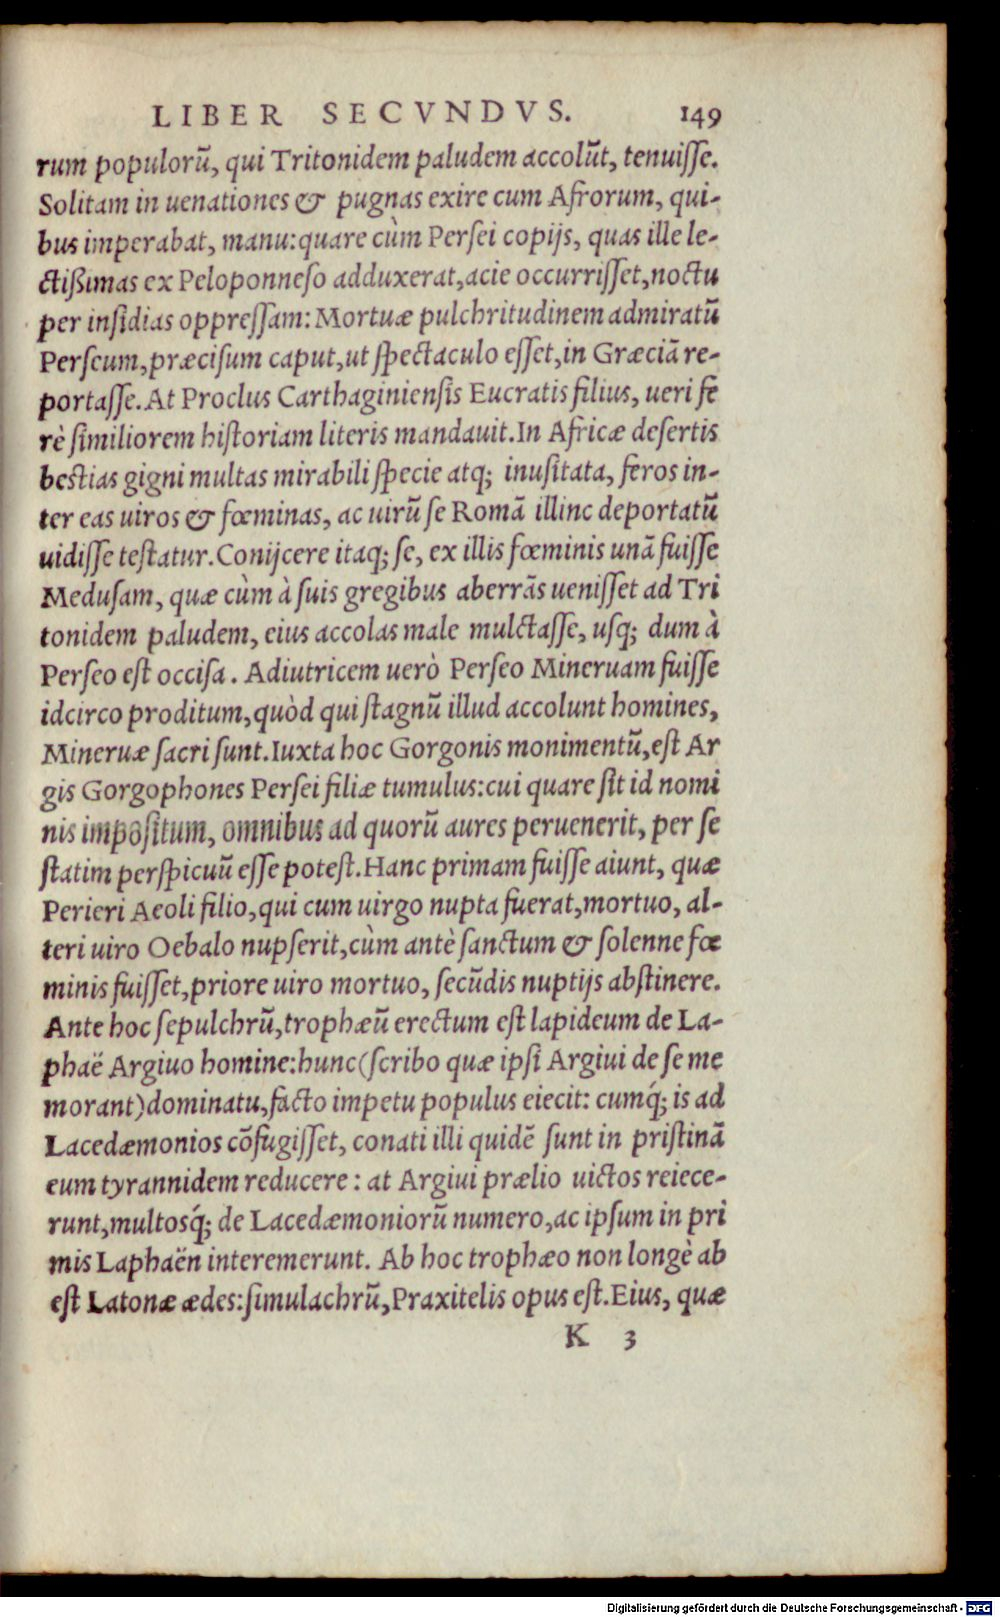 LIBER SECVNDVS. 149
rum populorũ, qui Tritonidem paludem accolũt, tenuisse.
Solitam in uenationes & pugnas exire cum Afrorum, qui-
bus imperabat, manu: quare cùm Persei copijs, quas ille le-
ctißimas ex Peloponneso adduxerat, acie occurrisset, noctu
per insidias oppressam: Mortuæ pulchritudinem admiratũ
Perseum, præcisum caput, ut spectaculo esset, in Græciã re-
portasse. At Proclus Carthaginiensis Eucratis filius, ueri fe
rè similiorem historiam literis mandauit. In Africæ desertis
bestias gigni multas mirabili specie atq; inusitata, feros in-
ter eas uiros & fœminas, ac uirũ se Romã illinc deportatũ
uidisse testatur. Conijcere itaq; se, ex illis fœminis unã fuisse
Medusam, quæ cùm à suis gregibus aberrãs uenisset ad Tri
tonidem paludem, eius accolas male mulctasse, usq; dum à
Perseo est occisa. Adiutricem uerò Perseo Mineruam fuisse
idcirco proditum, quòd qui stagnũ illud accolunt homines,
Mineruæ sacri sunt. Iuxta hoc Gorgonis monimentũ, est Ar
gis Gorgophones Persei filiæ tumulus: cui quare sit id nomi
nis impositum, omnibus ad quorũ aures peruenerit, per se
statim perspicuũ esse potest. Hanc primam fuisse aiunt, quæ
Perieri Aeoli filio, qui cum uirgo nupta fuerat, mortuo, al-
teri uiro Oebalo nupserit, cùm antè sanctum & solenne fœ
minis fuisset, priore uiro mortuo, secũdis nuptijs abstinere.
Ante hoc sepulchrũ, trophæũ erectum est lapideum de La-
phaë Argiuo homine: hunc (scribo quæ ipsi Argiui de se me
morant) dominatu, facto impetu populus eiecit: cumq́; is ad
Lacedæmonios cõfugisset, conati illi quidẽ sunt in pristinã
eum tyrannidem reducere: at Argiui prælio uictos reiece-
runt, multosq́; de Lacedæmoniorũ numero, ac ipsum in pri
mis Laphaën interemerunt. Ab hoc trophæo non longè ab
est Latonæ ædes: simulachrũ, Praxitelis opus est. Eius, quæ
K 3
Digitalisierung gefördert durch die Deutsche Forschungsgemeinschaft - DFG